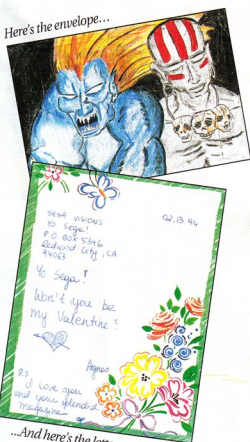 Here's the envelope...
SEGA VISIONS
Yo Sega!
P.O BOX 5346
Redwood City, CA
94063
02.13.94
Yo Sega!
Won't you be
my Valentine?
Agnes
P.S
I Love you
and your splendid
magazine
...And here's the